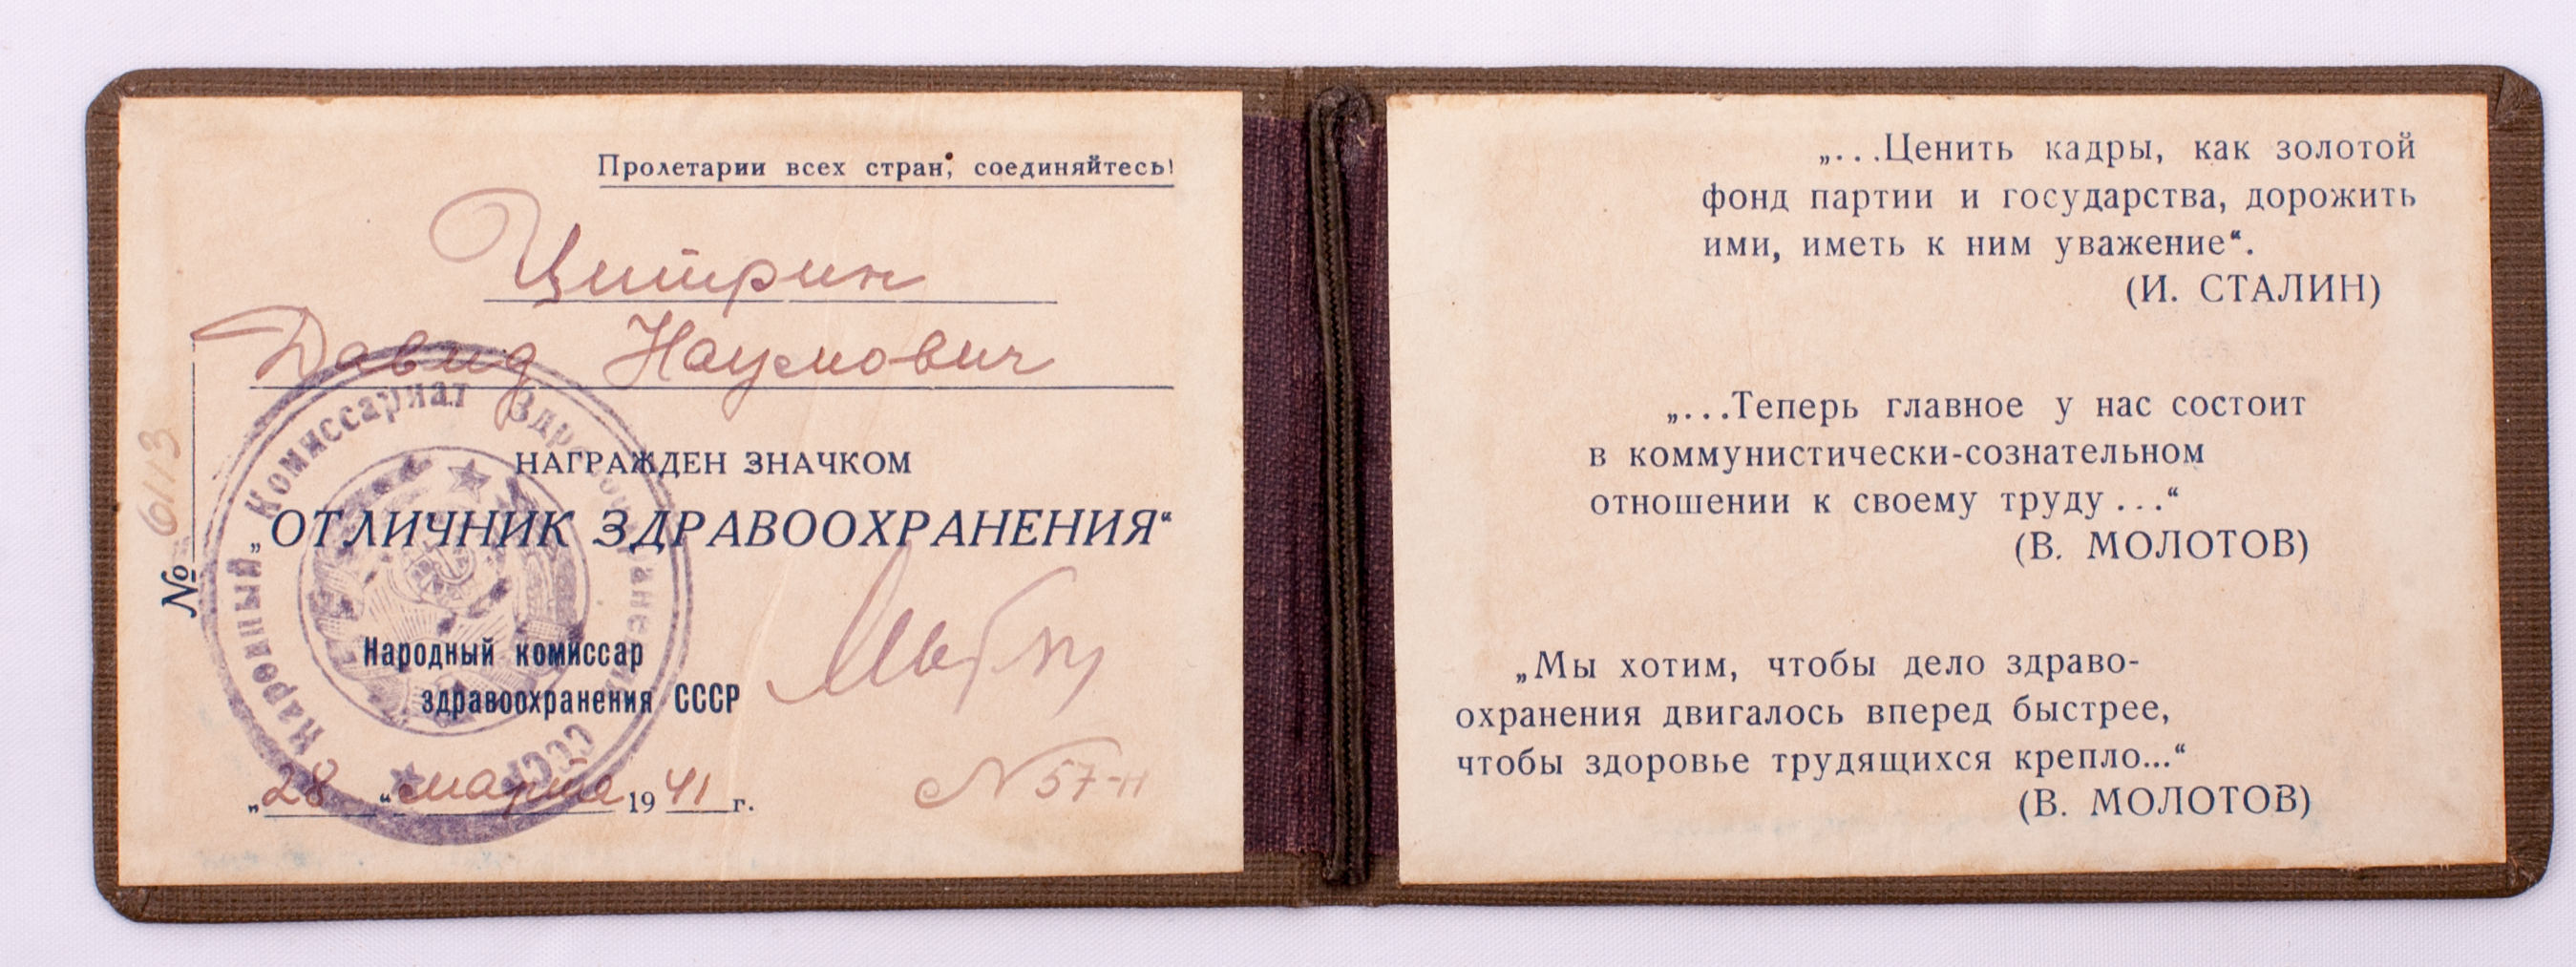 Пролетарии всех стран, соединяйтесь!
Цитрин
Давид Наумович
НАГРАЖДЕН ЗНАЧКОМ
„ОТЛИЧНИК ЗДРАВООХРАНЕНИЯ“
Народный комиссар
здравоохранения СССР
„28“ марта 1941 г.
N 57-н
№ 6113
Народный Комиссариат Здравоохранения СССР
„...Ценить кадры, как золотой
фонд партии и государства, дорожить
ими, иметь к ним уважение“.
(И. СТАЛИН)
„...Теперь главное у нас состоит
в коммунистически-сознательном
отношении к своему труду...“
(В. МОЛОТОВ)
„Мы хотим, чтобы дело здраво-
охранения двигалось вперед быстрее,
чтобы здоровье трудящихся крепло...“
(В. МОЛОТОВ)